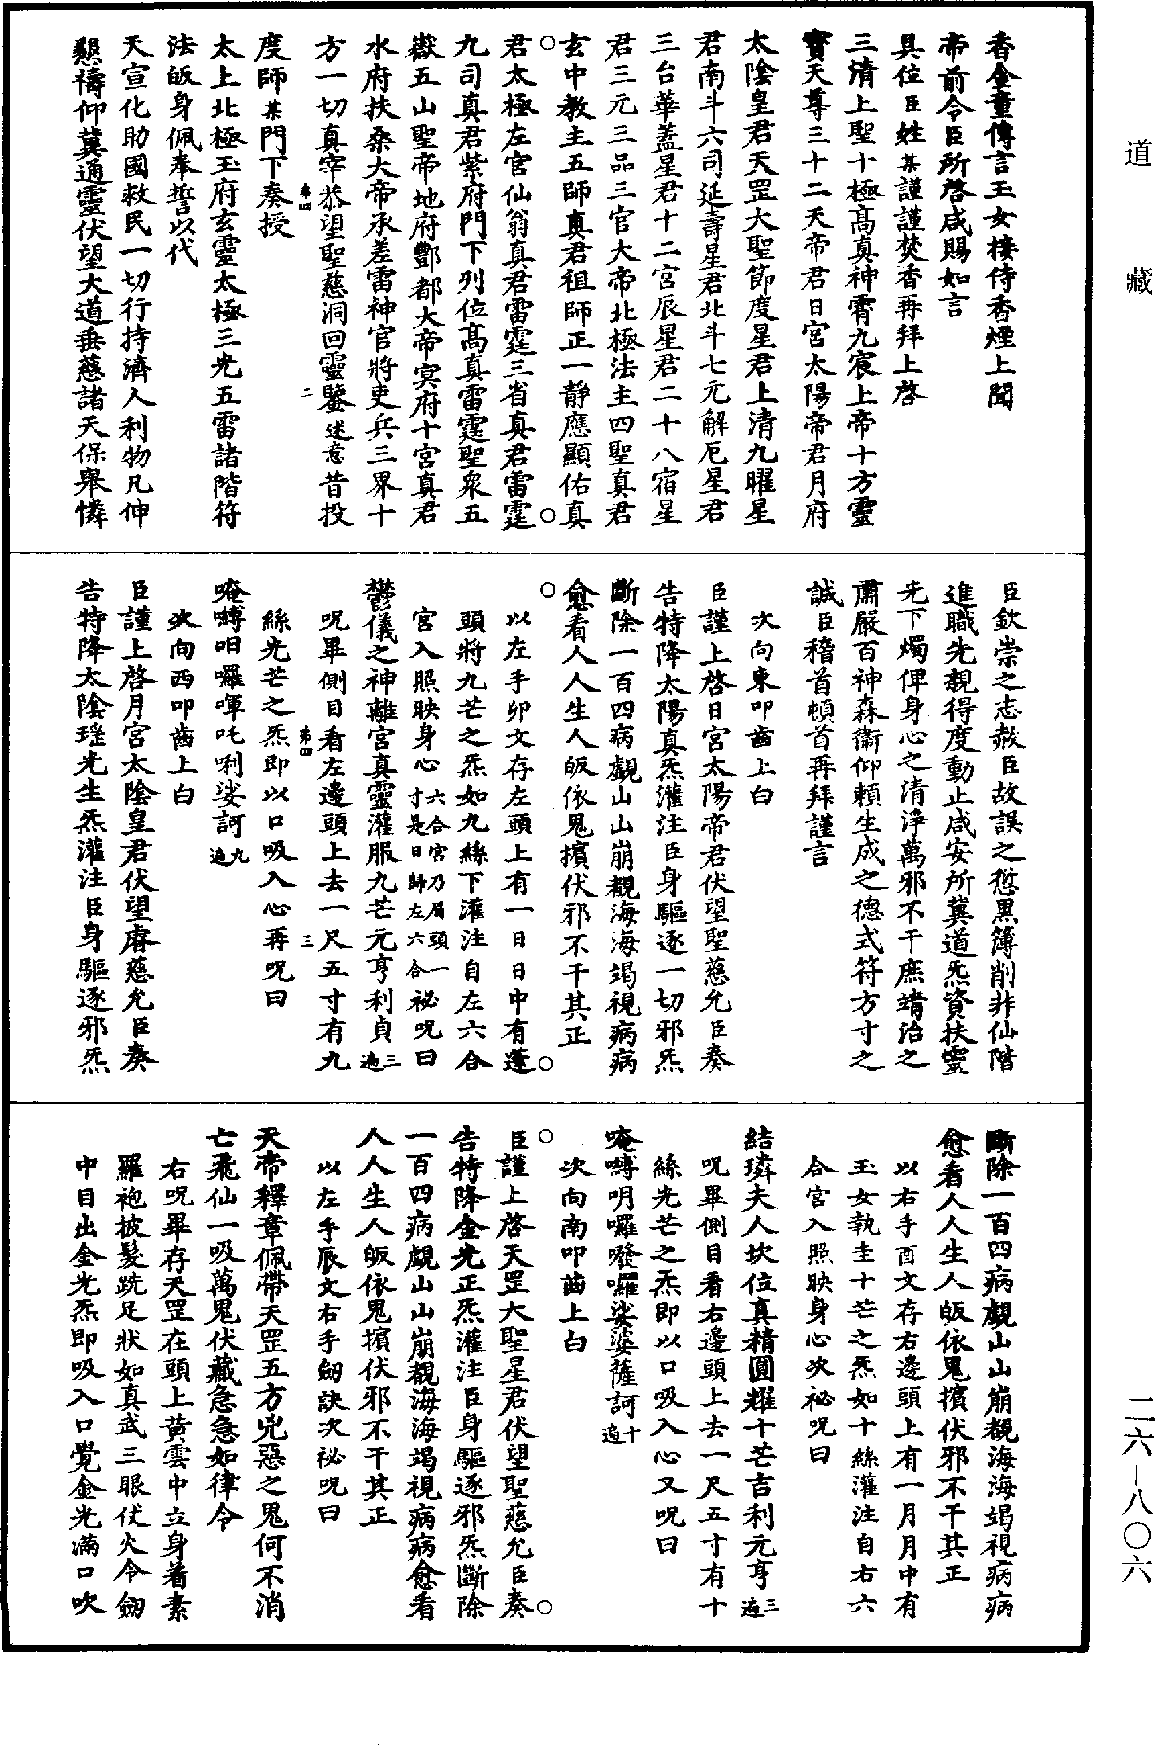 道藏
香金童傳言玉女接侍香煙上聞
帝前令臣所啓咸賜如言
具位臣姓某謹謹焚香再拜上啓
三清上聖十極高真神霄九宸上帝十方靈
寶天尊三十二天帝君日宮太陽帝君月府
太陰皇君天罡大聖節度星君上清九曜星
君南斗六司延壽星君北斗七元解厄星君
三台華蓋星君十二宮辰星君二十八宿星
君三元三品三官大帝北極法主四聖真君
玄中教主五師真君祖師正一靜應顯佑真
君太極左宮仙翁真君雷霆三省真君雷霆
九司真君紫府門下列位高真雷霆聖衆五
嶽五山聖帝地府酆都大帝冥府十宮真君
水府扶桑大帝承差雷神官將吏兵三界十
方一切真宰恭望聖慈洞回靈鑒述意昔投
度師某門下奏授
太上北極玉府玄靈太極三光五雷諸階符
法皈身佩奉誓以代
天宣化助國救民一切行持濟人利物凡伸
懇禱仰冀通靈伏望大道垂慈諸天保舉憐
臣欽崇之志赦臣故誤之愆黑簿削非仙階
進職先親得度動止咸安所冀道炁資扶靈
光下燭俾身心之清淨萬邪不干庶靖治之
肅嚴百神森衞仰賴生成之德式符方寸之
誠臣稽首頓首再拜謹言
次向東叩齒上白
臣謹上啓日宮太陽帝君伏望聖慈允臣奏
告特降太陽真炁灌注臣身驅逐一切邪炁
斷除一百四病覷山山崩觀海海竭視病病
愈看人人生人皈依鬼擯伏邪不干其正
以左手卯文存左頭上有一日日中有蓬
頭將九芒之炁如九絲下灌注自左六合
宮入照映身心六合宮乃眉頭一寸是日歸左六合祕呪曰
鬱儀之神離宮真靈灌服九芒元亨利貞三遍
呪畢側目看左邊頭上去一尺五寸有九
絲光芒之炁即以口吸入心再呪曰
唵嚩呬囉㖔吒唎娑訶九遍
次向西叩齒上白
臣謹上啓月宮太陰皇君伏望睿慈允臣奏
告特降太陰瑤光生炁灌注臣身驅逐邪炁
斷除一百四病覷山山崩觀海海竭視病病
愈看人人生人皈依鬼擯伏邪不干其正
以右手酉文存右邊頭上有一月月中有
玉女執圭十芒之炁如十絲灌注自右六
合宮入照映身心次祕呪曰
結璘夫人坎位真精圓耀十芒吉利元亨三遍
呪畢側目看右邊頭上去一尺五寸有十
絲光芒之炁即以口吸入心又呪曰
唵嚩明囉㘑囉娑婆薩訶十遍
次向南叩齒上白
臣謹上啓天罡大聖星君伏望聖慈允臣奏
告特降金光正炁灌注臣身驅逐邪炁斷除
一百四病覷山山崩觀海海竭視病病愈看
人人生人皈依鬼擯伏邪不干其正
以左手辰文右手劒訣次祕呪曰
天帝釋章佩帶天罡五方兇惡之鬼何不消
亡飛仙一吸萬鬼伏藏急急如律令
右呪畢存天罡在頭上黃雲中立身着素
羅袍披髮跣足狀如真武三眼伏火令劒
中目出金光炁即吸入口覺金光滿口吹
二六－八〇六